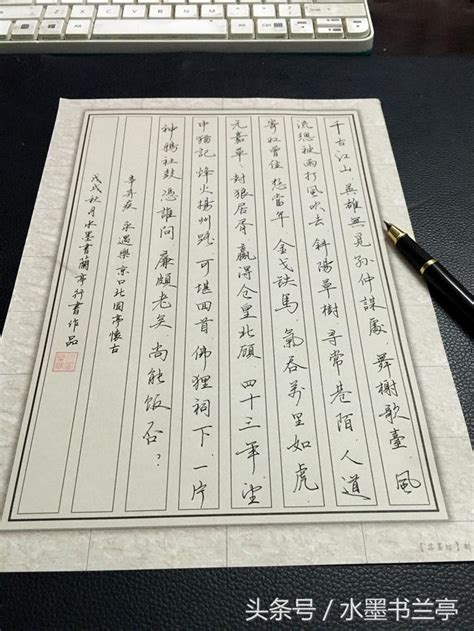 千古江山 英雄無覓孫仲謀處 舞榭歌臺 風
流總被雨打風吹去 斜陽草樹 尋常巷陌 人道
寄奴曾住 想當年 金戈鐵馬 氣吞萬里如虎
元嘉草、封狼居胥 贏得仓皇北顧 四十三年望
中猶記 烽火揚州路 可堪回首 佛狸祠下 一片
神鴉社鼓 憑誰問 廉頗老矣 尚能饭否？
辛弃疾 永遇樂 京口北固亭懷古
戊戌秋月水墨書蘭亭行書作品
头条号 / 水墨书兰亭